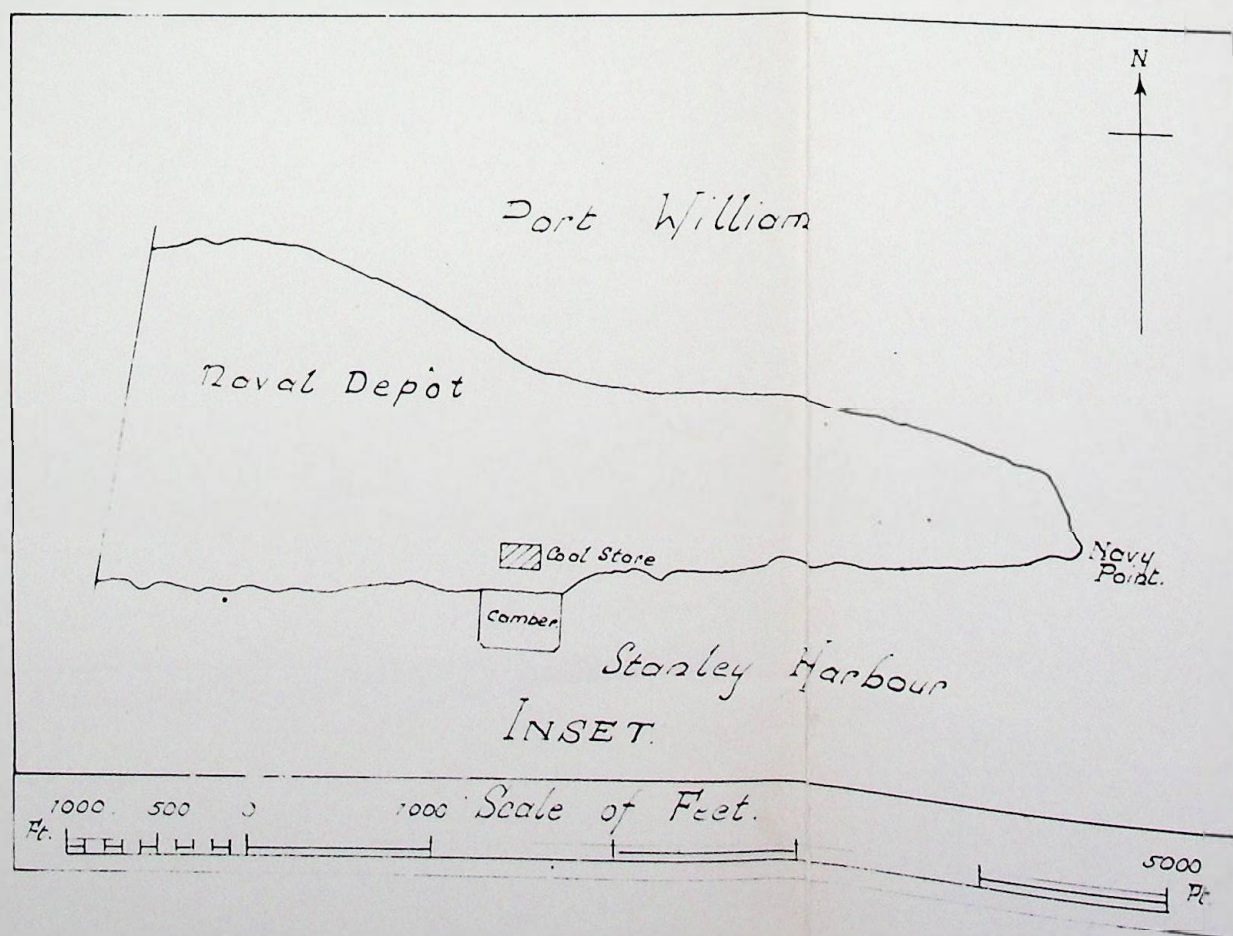 N
Port William
Naval Depôt
Coal Store
Navy
Point.
Camber.
Stanley Harbour
INSET.
1000. 500 0 1000 Scale of Feet. 5000
Ft. Ft.